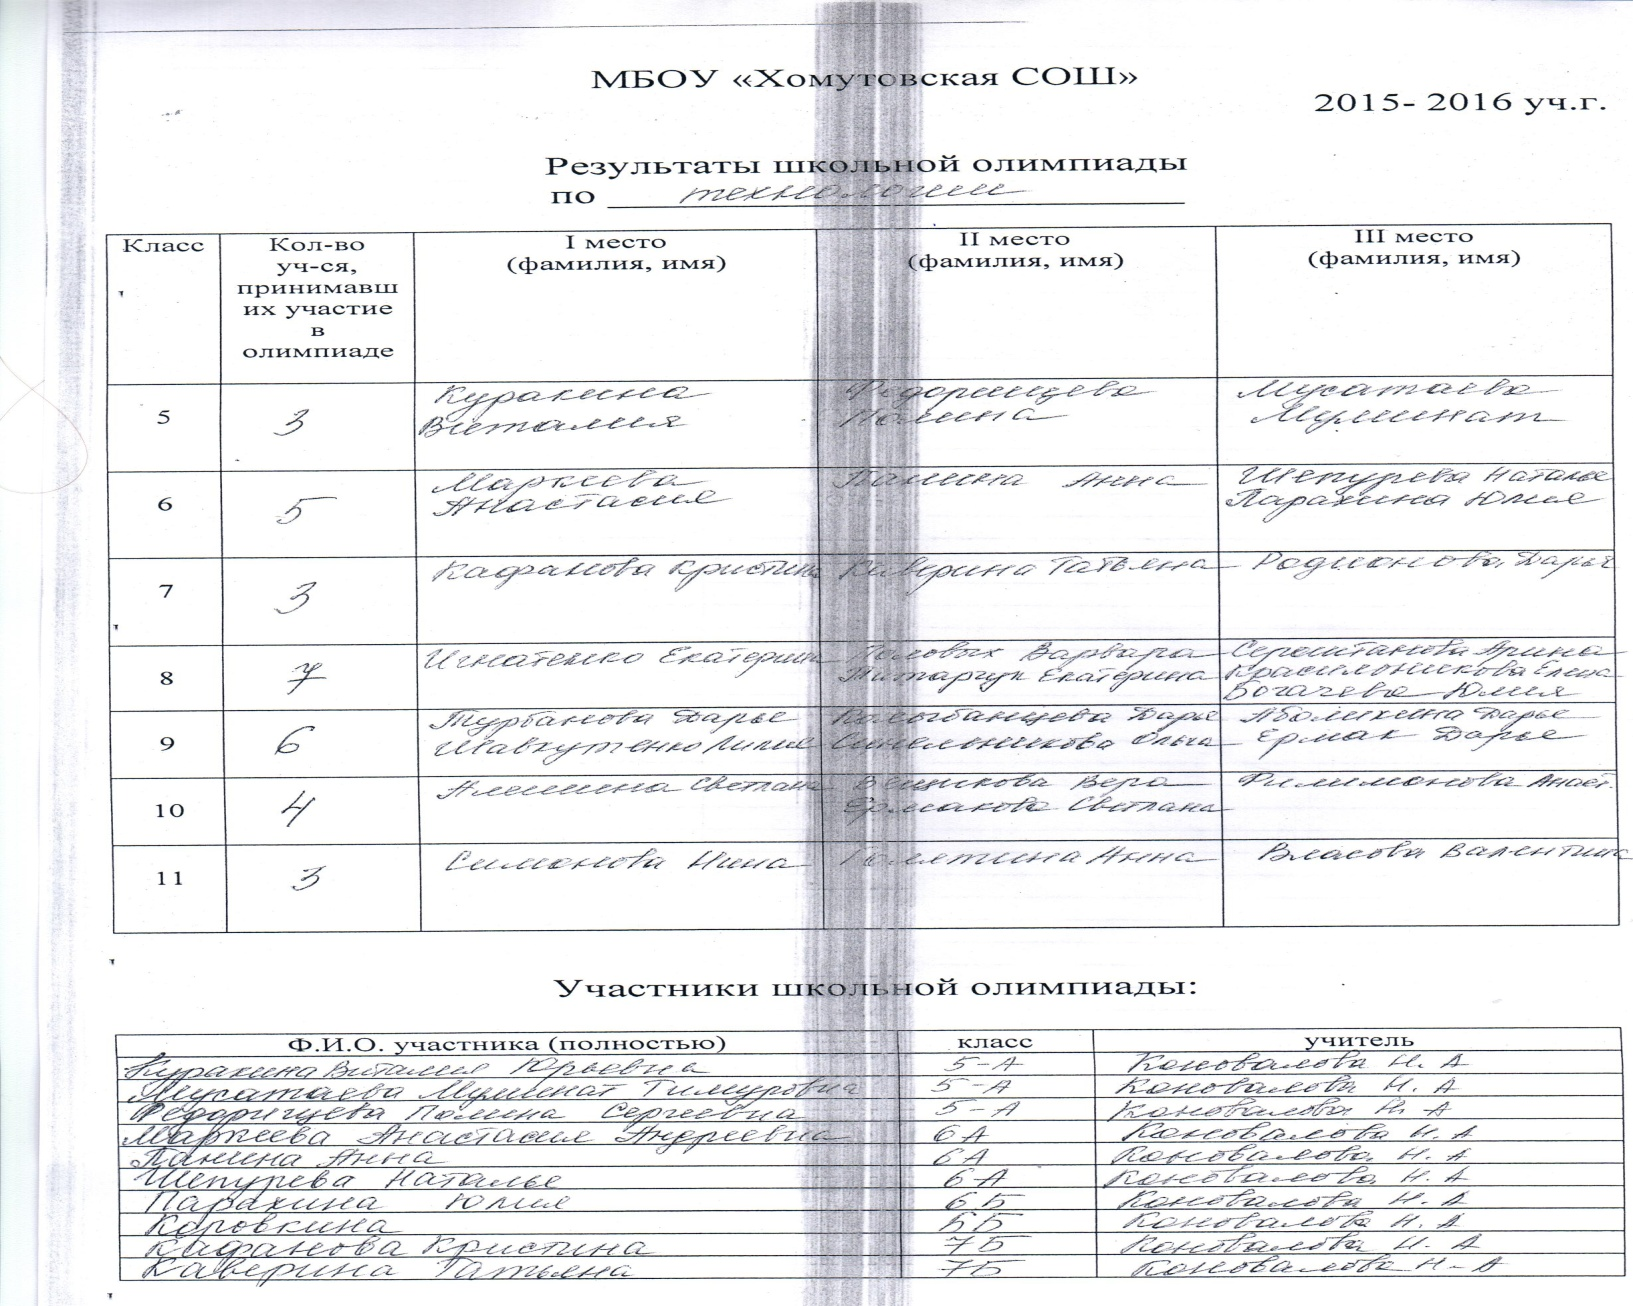 МБОУ «Хомутовская СОШ»
2015- 2016 уч.г.
Результаты школьной олимпиады
по технологии
Класс
Кол-во
уч-ся,
принимавш
их участие
в
олимпиаде
I место
(фамилия, имя)
II место
(фамилия, имя)
III место
(фамилия, имя)
5
3
Куракина
Виталия
Федорищева
Полина
Мусатаева
Муминат
6
5
Маркеева
Анастасия
Панина Анна
Шепурева Наталья
Парахина Юлия
7
3
Кафанова Кристина
Каверина Татьяна
Родионова Дарья
8
7
Игнатенко Екатерина
Варвара
Титарчук Екатерина
Арина
Красильникова Елена
Богачева Юлия
9
6
Турбанова Дарья
Шавкутенко Лилия
Дарья
Синельникова Ольга
Аболихина Дарья
Ермак Дарья
10
4
Алешина Светлана
Вера
Ермакова Светлана
Филимонова Анаст.
11
3
Симонова Нина
Анна
Власова Валентина
Участники школьной олимпиады:
Ф.И.О. участника (полностью) класс учитель
Куракина Виталия Юрьевна 5-А Коновалова Н. А
Мусатаева Муминат Тимуровна 5-А Коновалова Н. А
Федорищева Полина Сергеевна 5-А Коновалова Н. А
Маркеева Анастасия Андреевна 6А Коновалова Н. А
Панина Анна 6А Коновалова Н. А
Шепурева Наталья 6-А Коновалова Н. А
Парахина Юлия 6Б Коновалова Н. А
Коровкина 6Б Коновалова Н. А
Кафанова Кристина 7Б Коновалова Н. А
Каверина Татьяна 7Б Коновалова Н-А